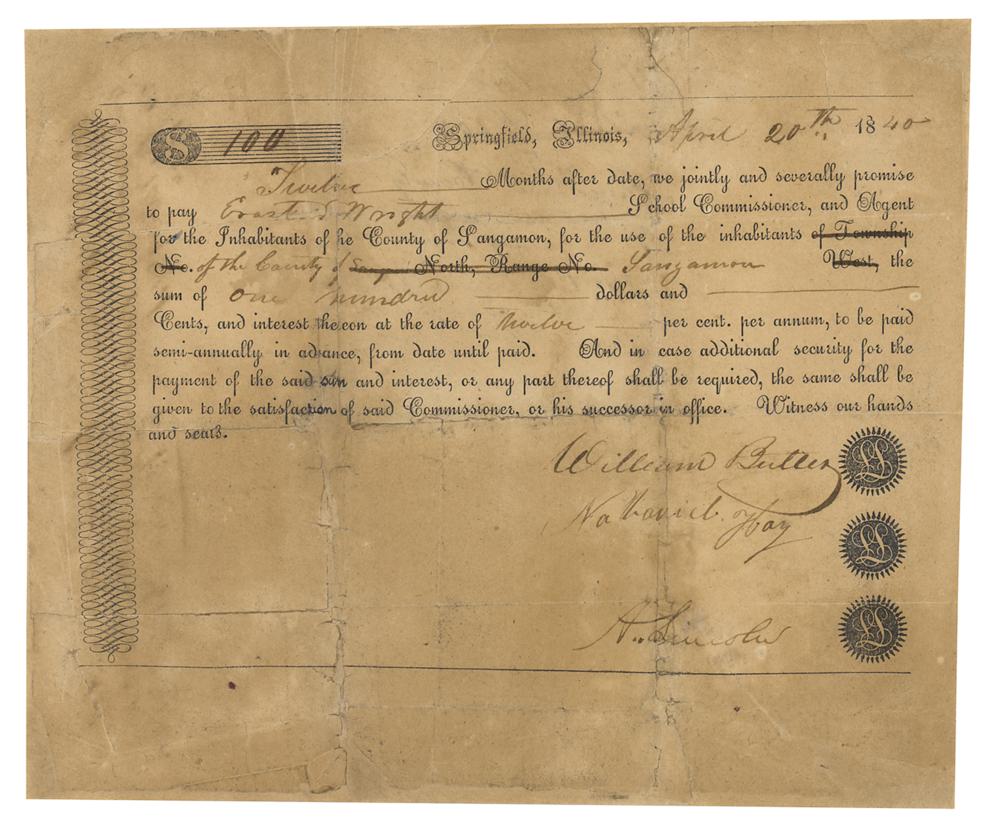 $ 100 Springfield, Illinois, April 20th 1840
Twelve Months after date, we jointly and severally promise
to pay Erast S Wright School Commissioner, and Agent
for the Inhabitants of he County of Sangamon, for the use of the inhabitants of Township
No. of the County of North, Range No. Sangamon West, the
sum of One hundred dollars and
Cents, and interest thereon at the rate of twelve per cent. per annum, to be paid
semi-annually in advance, from date until paid. And in case additional security for the
payment of the said sum and interest, or any part thereof shall be required, the same shall be
given to the satisfaction of said Commissioner, or his successor in office. Witness our hands
and seals.
William Butler
Nathaniel Hay
A. Lincoln